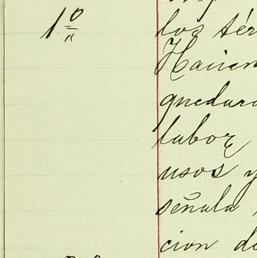 1º
los tér
Hacien
quedara
labor
usos y
señala
cion de